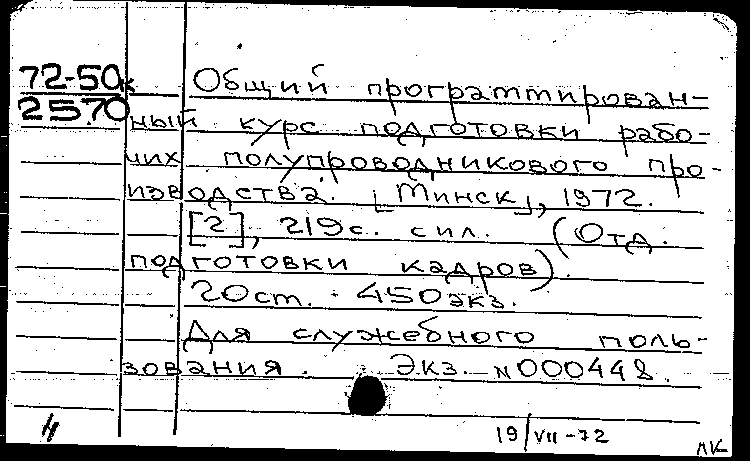 72-50к Общий программирован-
2570 ный курс подготовки рабо-
чих полупроводникового про-
изводства. [Минск], 1972.
[2], 219 с. с ил. (Отд.
подготовки кадров).
20 ст. 450 экз.
Для служебного поль-
зования. Экз. N 000448.
19/VII-72